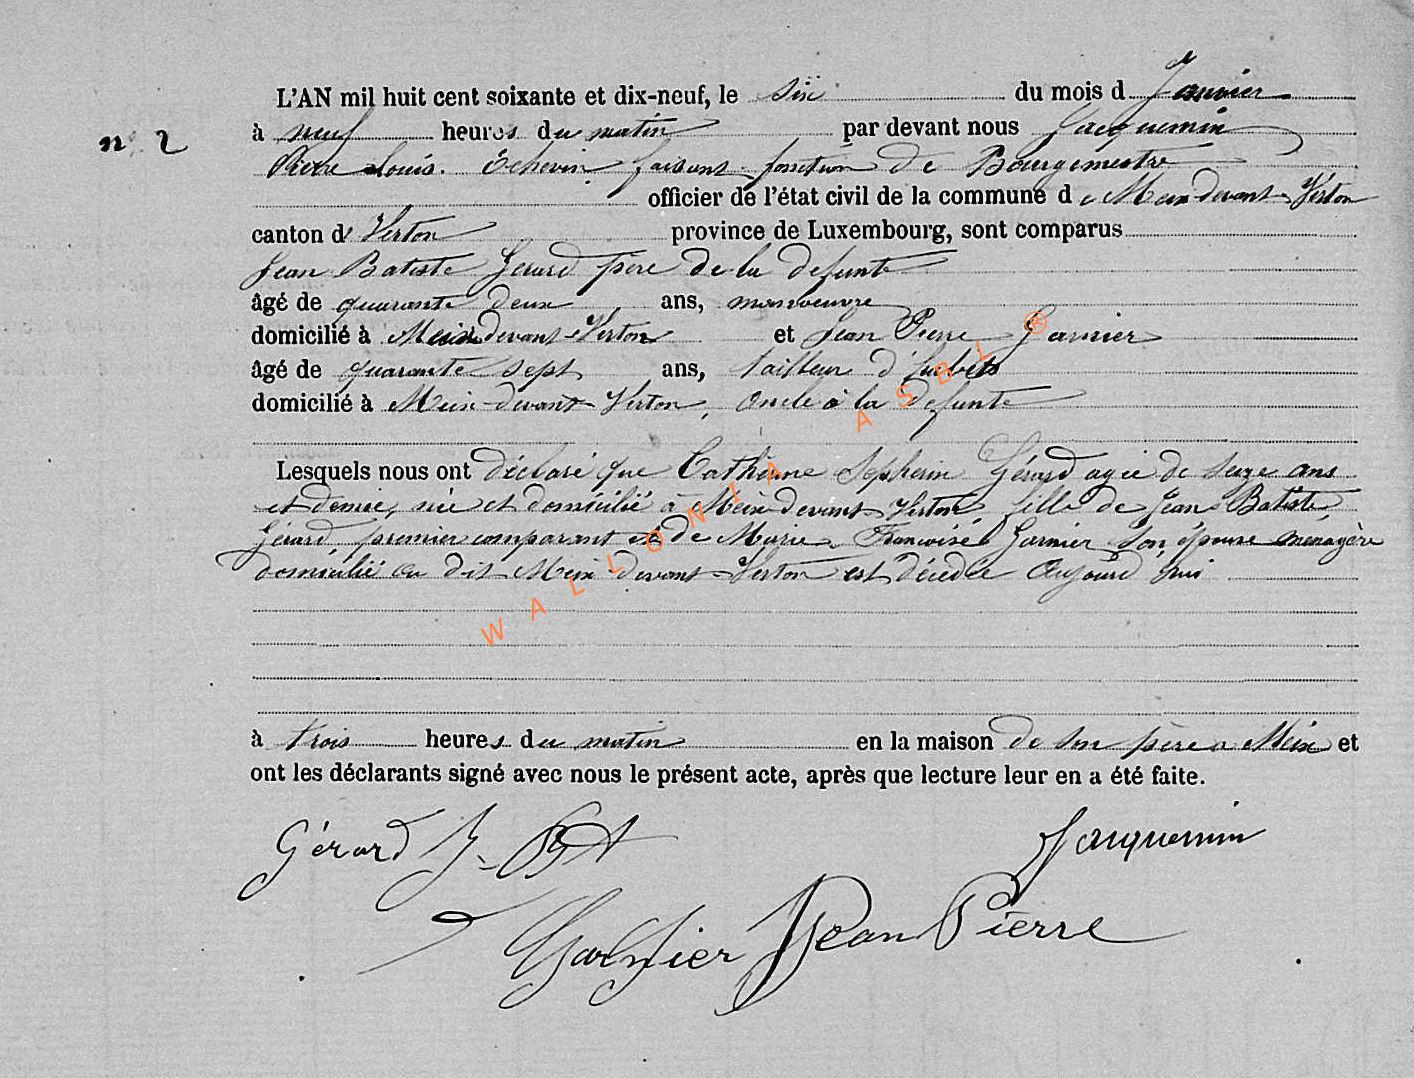 L'AN mil huit cent soixante et dix-neuf, le six du mois d Janvier
n° 2
à neuf heures du matin par devant nous Jacquemin
Pierre Louis. Echevin faisant fonction de Bourgmestre
officier de l'état civil de la commune de Meix devant-Virton
canton de Virton province de Luxembourg, sont comparus
Jean Batiste Gerard père de la defunte
âgé de quarante deux ans, manoeuvre
domicilié à Meix devant-Virton et Jean Pierre Garnier
âgé de quarante sept ans, tailleur d'habits
domicilié à Meix-devant Virton, oncle à la defunte
Lesquels nous ont déclaré que Catherine Gérard agée de seize ans
et demie, née et domicilié à Meix devant Virton fille de Jean Batiste
Gérard, premier comparant et de Marie Francoise Garnier son épouse ménagère
domicilié au dit Meix-devant-Virton est décédée aujourd hui
à trois heures du matin en la maison de son père a Meix et
ont les déclarants signé avec nous le présent acte, après que lecture leur en a été faite.
Gérard J-Bt Jacquemin
Garnier Jean Pierre
WALLONIA ASBL ®